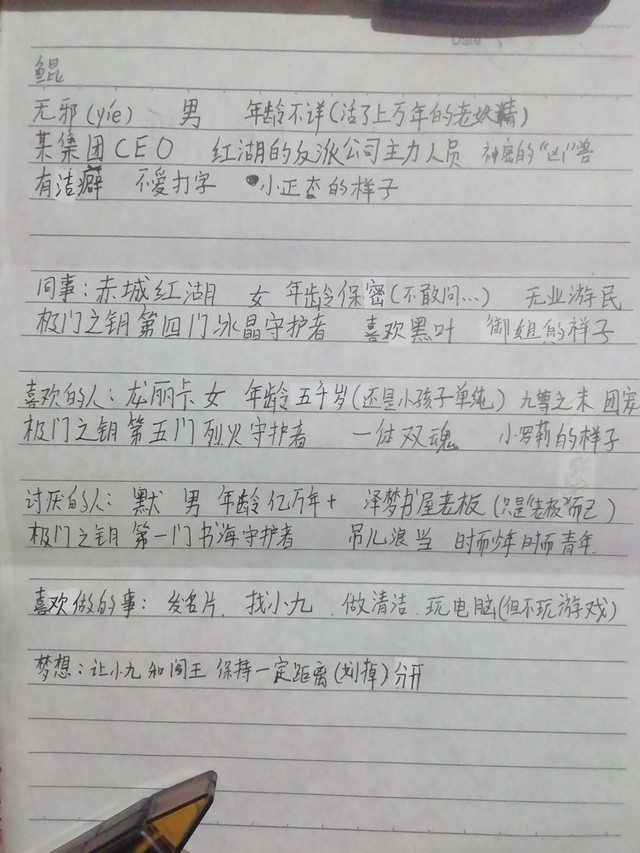 Date
鲲
无邪(yíe) 男 年龄不详(活了上万年的老妖精)
某集团CEO 红湖的反派公司主力人员 神密的“凶”兽
有洁癖 不爱打字 小正太的样子
同事:赤城红湖 女 年龄保密(不敢问...) 无业游民
极门之钥第四门冰晶守护者 喜欢黑叶 御姐的样子
喜欢的人:龙丽卡 女 年龄五千岁(还是小孩子单纯) 九尊之末 团宠
极门之钥第五门烈火守护者 一体双魂 小罗莉的样子
讨厌的人:默 男 年龄亿万年+ 泽梦书屋老板(只是“老板”而已)
极门之钥 第一门书海守护者 吊儿浪当 时而少年时而青年
喜欢做的事:发名片、找小九、做清洁、玩电脑(但不玩游戏)
梦想:让小九和阎王 保持一定距离(划掉)分开